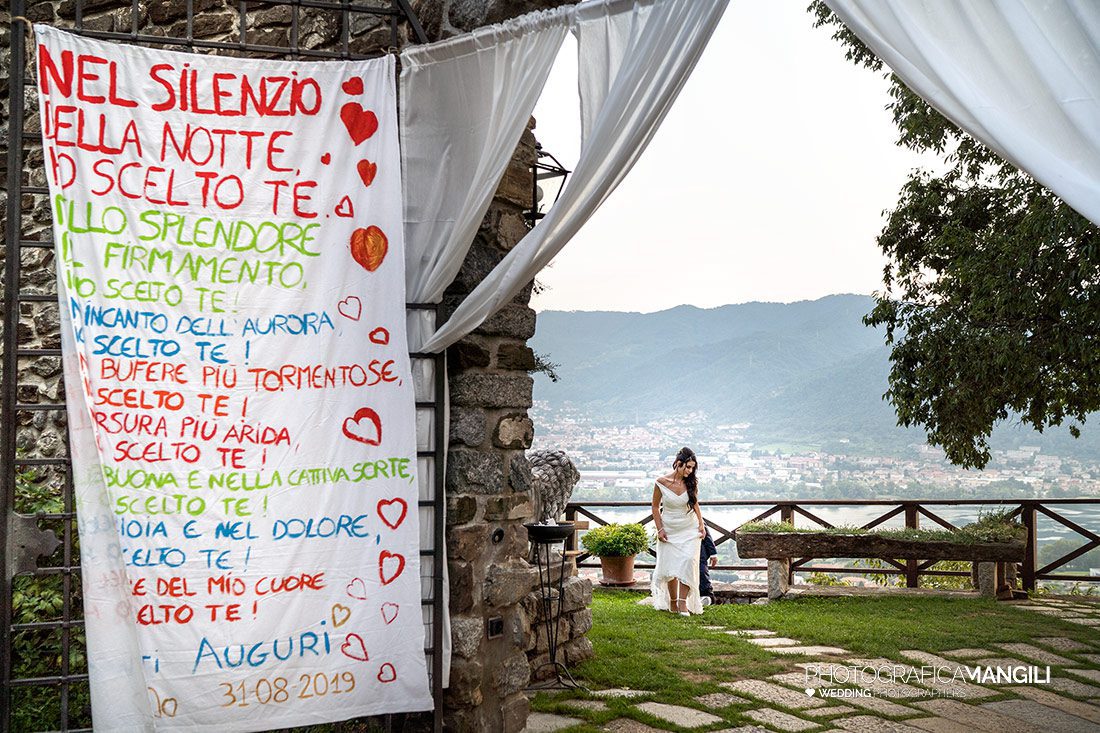 NEL SILENZIO
DELLA NOTTE,
IO SCELTO TE.
LLO SPLENDORE
L FIRMAMENTO,
HO SCELTO TE!
INCANTO DELL'AURORA,
SCELTO TE!
BUFERE PIÙ TORMENTOSE,
SCELTO TE!
RSURA PIÙ ARIDA,
SCELTO TE!
BUONA E NELLA CATTIVA SORTE,
SCELTO TE!
GIOIA E NEL DOLORE,
SCELTO TE!
E DEL MIO CUORE
ELTO TE!
TI AUGURI
31-08-2019
PHOTOGRAFICAMANGILI
WEDDING PHOTOGRAPHERS